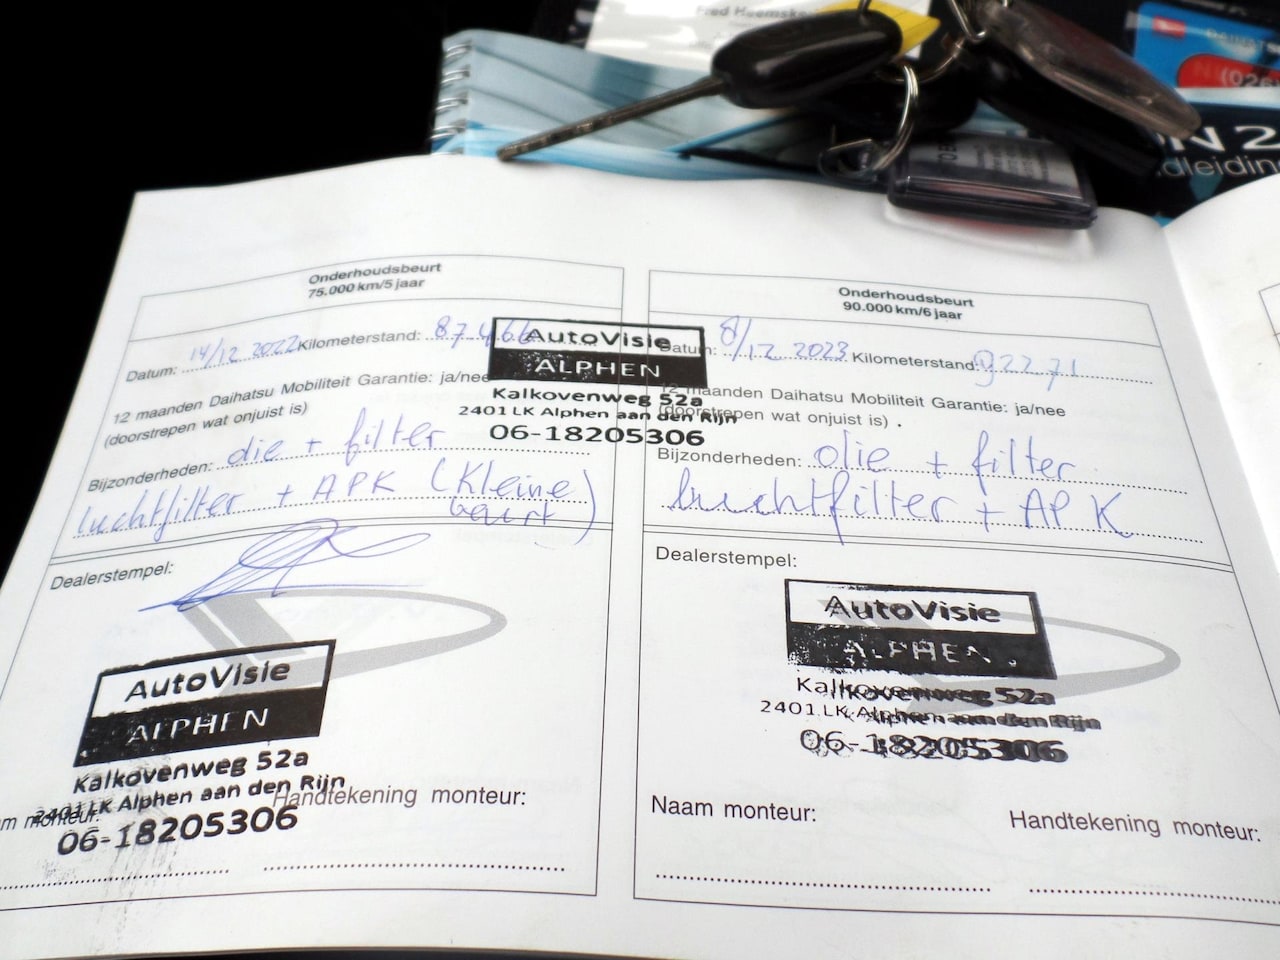 Fred Heemske
DAIHATS
(026)
N 2
dleiding
Onderhoudsbeurt
75.000 km/5 jaar
Datum: 14/12 2022 Kilometerstand: 87.466
12 maanden Daihatsu Mobiliteit Garantie: ja/nee
(doorstrepen wat onjuist is)
Bijzonderheden: olie + filter
luchtfilter + APK (Kleine
beurt)
Dealerstempel:
AutoVisie
ALPHEN
Kalkovenweg 52a
2401 LK Alphen aan den Rijn
06-18205306
m monteur:
Handtekening monteur:
AutoVisie
ALPHEN
Kalkovenweg 52a
2401 LK Alphen aan den Rijn
06-18205306
Onderhoudsbeurt
90.000 km/6 jaar
Datum: 8/12 2023 Kilometerstand: 92271
12 maanden Daihatsu Mobiliteit Garantie: ja/nee
(doorstrepen wat onjuist is)
Bijzonderheden: olie + filter
luchtfilter + APK
Dealerstempel:
AutoVisie
ALPHEN
Kalkovenweg 52a
2401 LK Alphen aan den Rijn
06-18205306
Naam monteur:
Handtekening monteur: